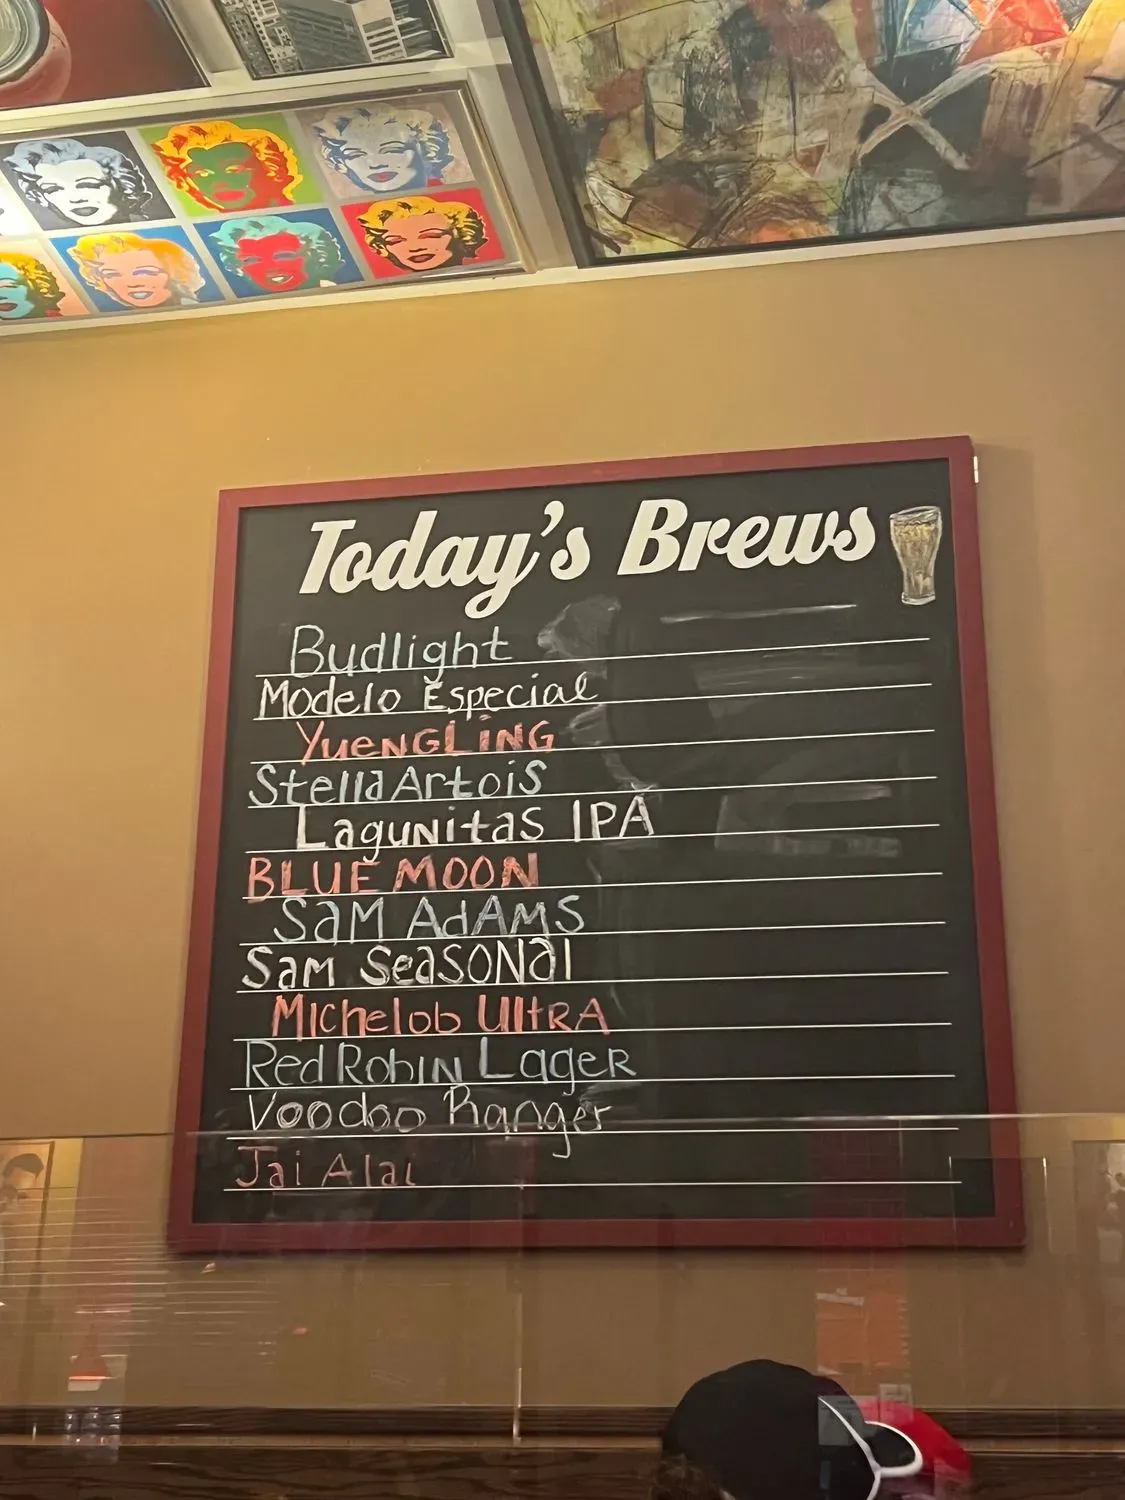 Today's Brews
Budlight
Modelo Especial
YuenGLiNG
Stella Artois
Lagunitas IPA
BLUE MOON
SaM AdAMS
Sam SeaSONal
MIchelob UltRA
Red RobIN LageR
Voodoo Ranger
Jai Alai